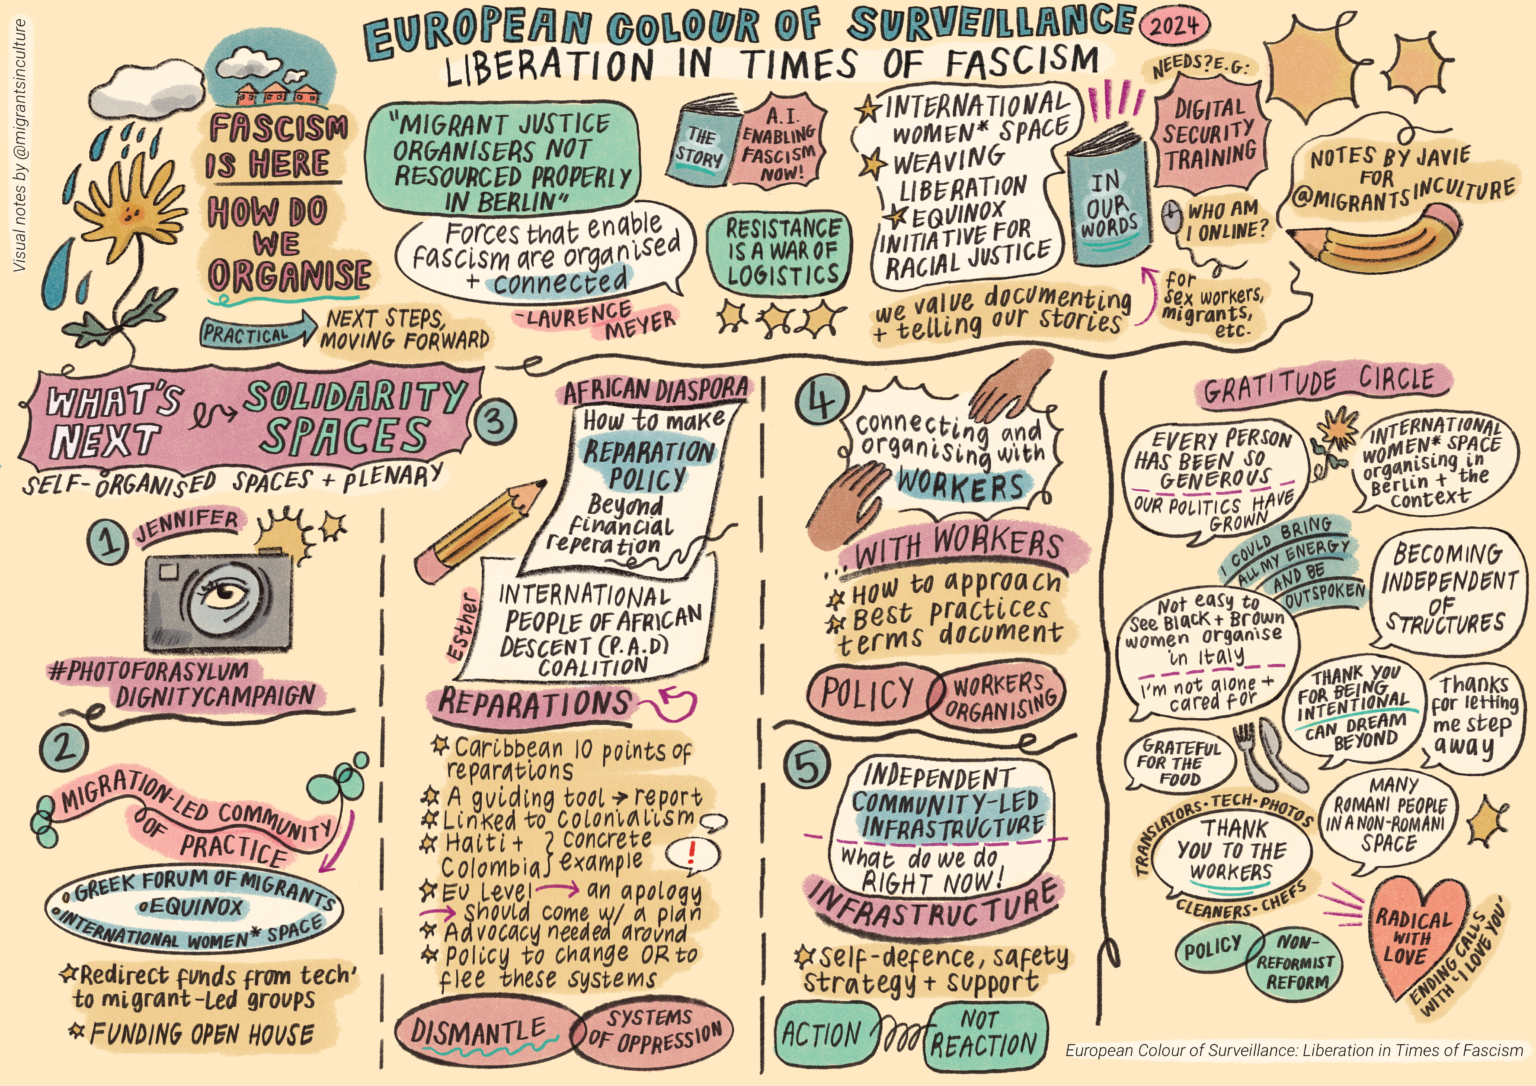 Visual notes by @migrantsinculture
EUROPEAN COLOUR OF SURVEILLANCE
2024
LIBERATION IN TIMES OF FASCISM
FASCISM
IS HERE
HOW DO
WE
ORGANISE
PRACTICAL
NEXT STEPS,
MOVING FORWARD
"MIGRANT JUSTICE
ORGANISERS NOT
RESOURCED PROPERLY
IN BERLIN"
Forces that enable
fascism are organised
+ connected
-LAURENCE
MEYER
THE
STORY
A.I.
ENABLING
FASCISM
NOW!
RESISTANCE
IS A WAR OF
LOGISTICS
INTERNATIONAL
WOMEN* SPACE
WEAVING
LIBERATION
EQUINOX
INITIATIVE FOR
RACIAL JUSTICE
we value documenting
+ telling our stories
IN
OUR
WORDS
NEEDS? E.G:
DIGITAL
SECURITY
TRAINING
WHO AM
I ONLINE?
for
sex workers,
migrants,
etc.
NOTES BY JAVIE
FOR
@MIGRANTSINCULTURE
WHAT'S
NEXT
SOLIDARITY
SPACES
SELF-ORGANISED SPACES + PLENARY
1
JENNIFER
#PHOTOFORASYLUM
DIGNITYCAMPAIGN
2
MIGRATION-LED COMMUNITY
OF
PRACTICE
GREEK FORUM OF MIGRANTS
EQUINOX
INTERNATIONAL WOMEN* SPACE
Redirect funds from tech'
to migrant-Led groups
FUNDING OPEN HOUSE
3
AFRICAN DIASPORA
How to make
REPARATION
POLICY
Beyond
financial
reperation
Esther
INTERNATIONAL
PEOPLE OF AFRICAN
DESCENT (P.A.D)
COALITION
REPARATIONS
Caribbean 10 points of
reparations
A guiding tool → report
Linked to Colonialism
Haiti +
Colombia
} concrete
example
!
EU Level → an apology
→ should come w/ a plan
Advocacy needed around
Policy to change OR to
flee these systems
DISMANTLE
SYSTEMS
OF OPPRESSION
4
connecting and
organising with
WORKERS
...WITH WORKERS
How to approach
Best practices
terms document
POLICY
WORKERS
ORGANISING
5
INDEPENDENT
COMMUNITY-LED
INFRASTRUCTURE
What do we do
RIGHT NOW!
INFRASTRUCTURE
Self-defence, safety
strategy + support
ACTION
NOT
REACTION
GRATITUDE CIRCLE
EVERY PERSON
HAS BEEN SO
GENEROUS
OUR POLITICS HAVE
GROWN
INTERNATIONAL
WOMEN* SPACE
organising in
Berlin + the
context
I COULD BRING
ALL MY ENERGY
AND BE
OUTSPOKEN
BECOMING
INDEPENDENT
OF
STRUCTURES
Not easy to
See Black + Brown
women organise
in Italy
I'm not alone +
cared for
THANK YOU
FOR BEING
INTENTIONAL
CAN DREAM
BEYOND
Thanks
for letting
me step
away
GRATEFUL
FOR THE
FOOD
TRANSLATORS · TECH · PHOTOS
THANK
YOU TO THE
WORKERS
CLEANERS · CHEFS
MANY
ROMANI PEOPLE
IN A NON-ROMANI
SPACE
POLICY
NON-
REFORMIST
REFORM
RADICAL
WITH
LOVE
ENDING CALLS
WITH 'I LOVE YOU'
European Colour of Surveillance: Liberation in Times of Fascism